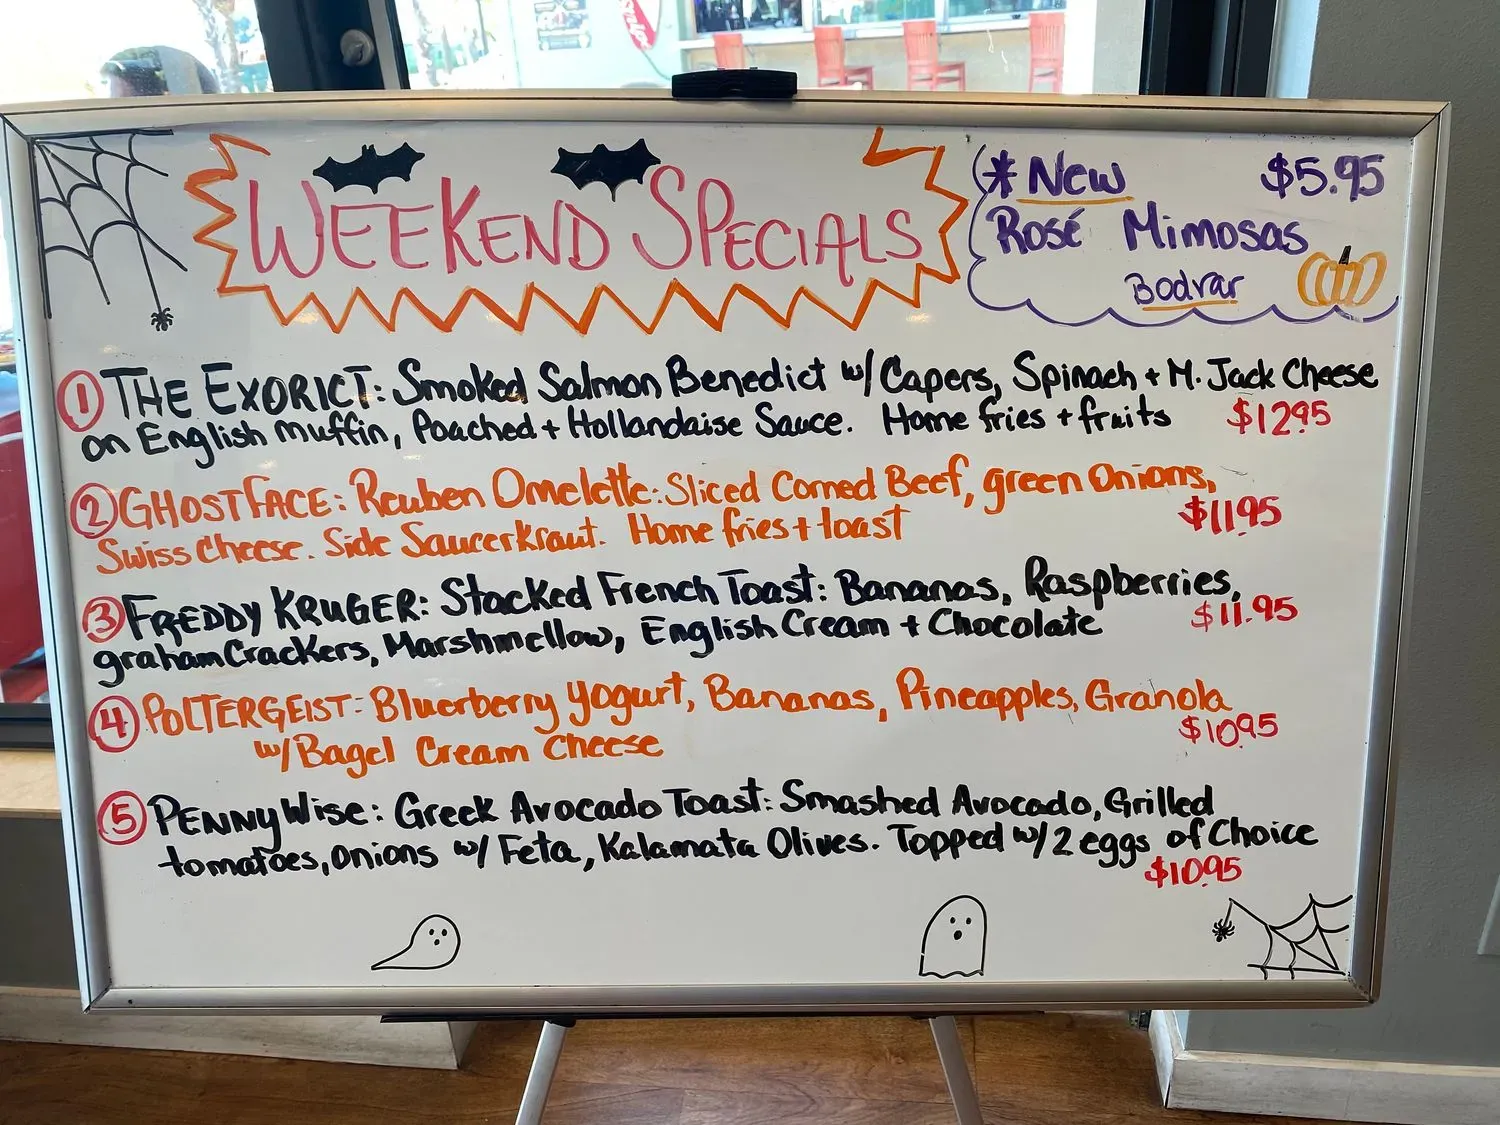 WEEKEND SPECIALS
* New $5.95
Rosé Mimosas
Bodvar
1 THE EXORICT: Smoked Salmon Benedict w/ Capers, Spinach + M. Jack Cheese
on English muffin, Poached + Hollandaise Sauce. Home fries + fruits $12.95
2 GHOSTFACE: Reuben Omelette: Sliced Corned Beef, green Onions,
Swiss cheese. Side Saucerkraut. Home fries + toast $11.95
3 FREDDY KRUGER: Stacked French Toast: Bananas, Raspberries,
graham Crackers, Marshmellow, English Cream + Chocolate $11.95
4 POLTERGEIST: Bluerberry Yogurt, Bananas, Pineapples, Granola
w/ Bagel Cream Cheese $10.95
5 PENNYWISE: Greek Avocado Toast: Smashed Avocado, Grilled
tomatoes, onions w/ Feta, Kalamata Olives. Topped w/ 2 eggs of Choice
$10.95